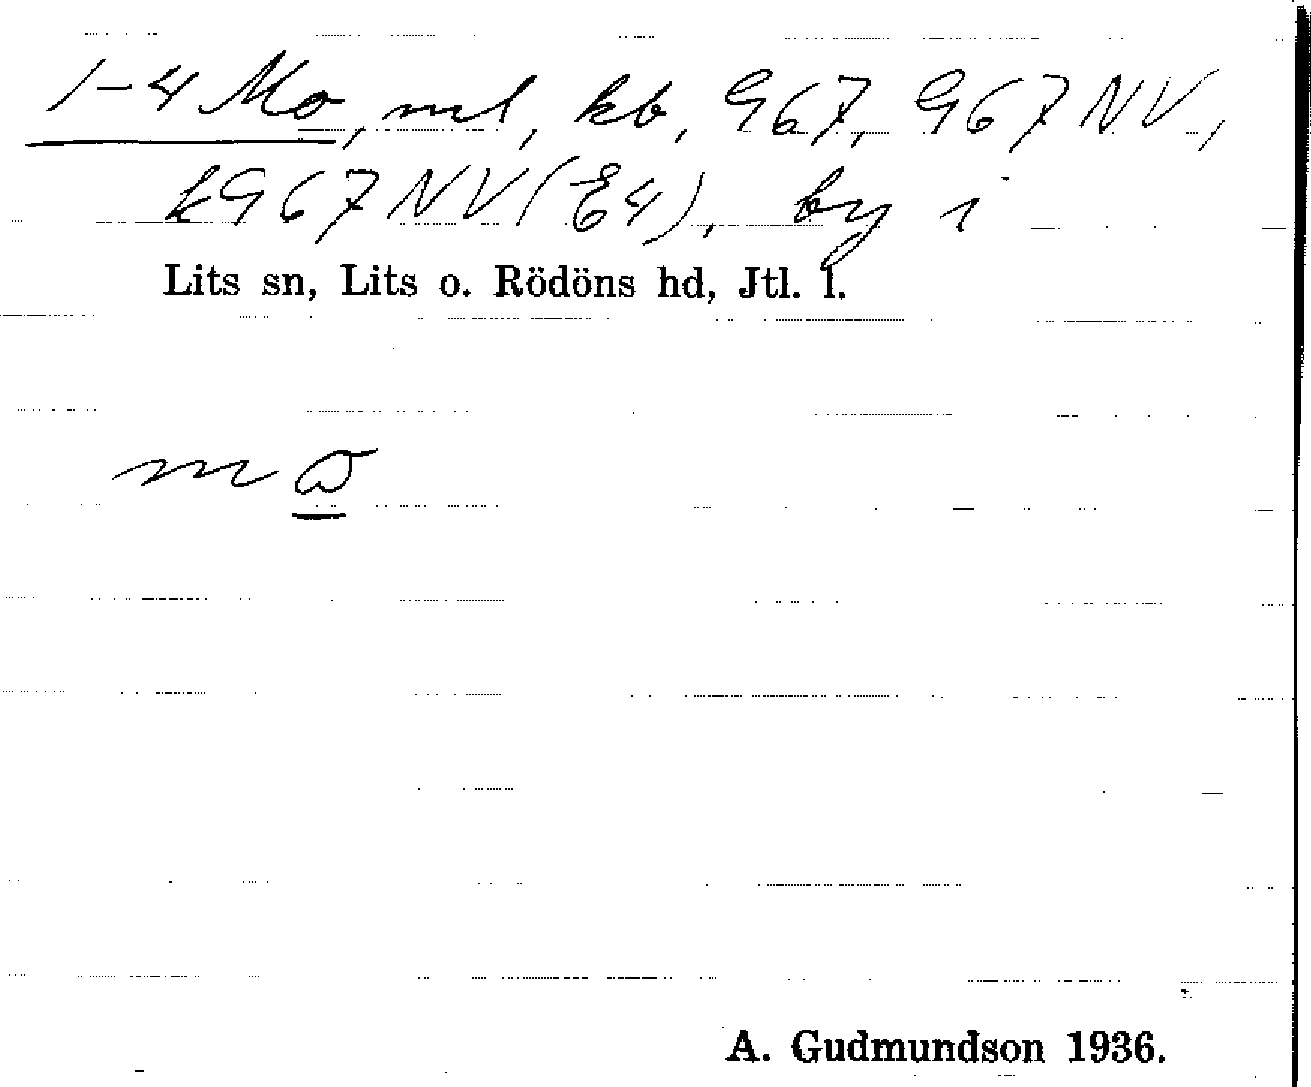 1-4 Mo, ml, kb, G67, G67 NV,
kG67 NV (E4), by i
Lits sn, Lits o. Rödöns hd, Jtl. l.
A. Gudmundson 1936.